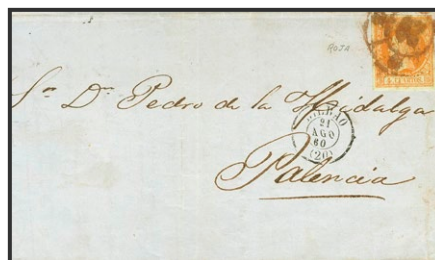 ROJA
Sr. Dn. Pedro de la Hidalga
BILBAO
21
AGO
60
(20)
Palencia